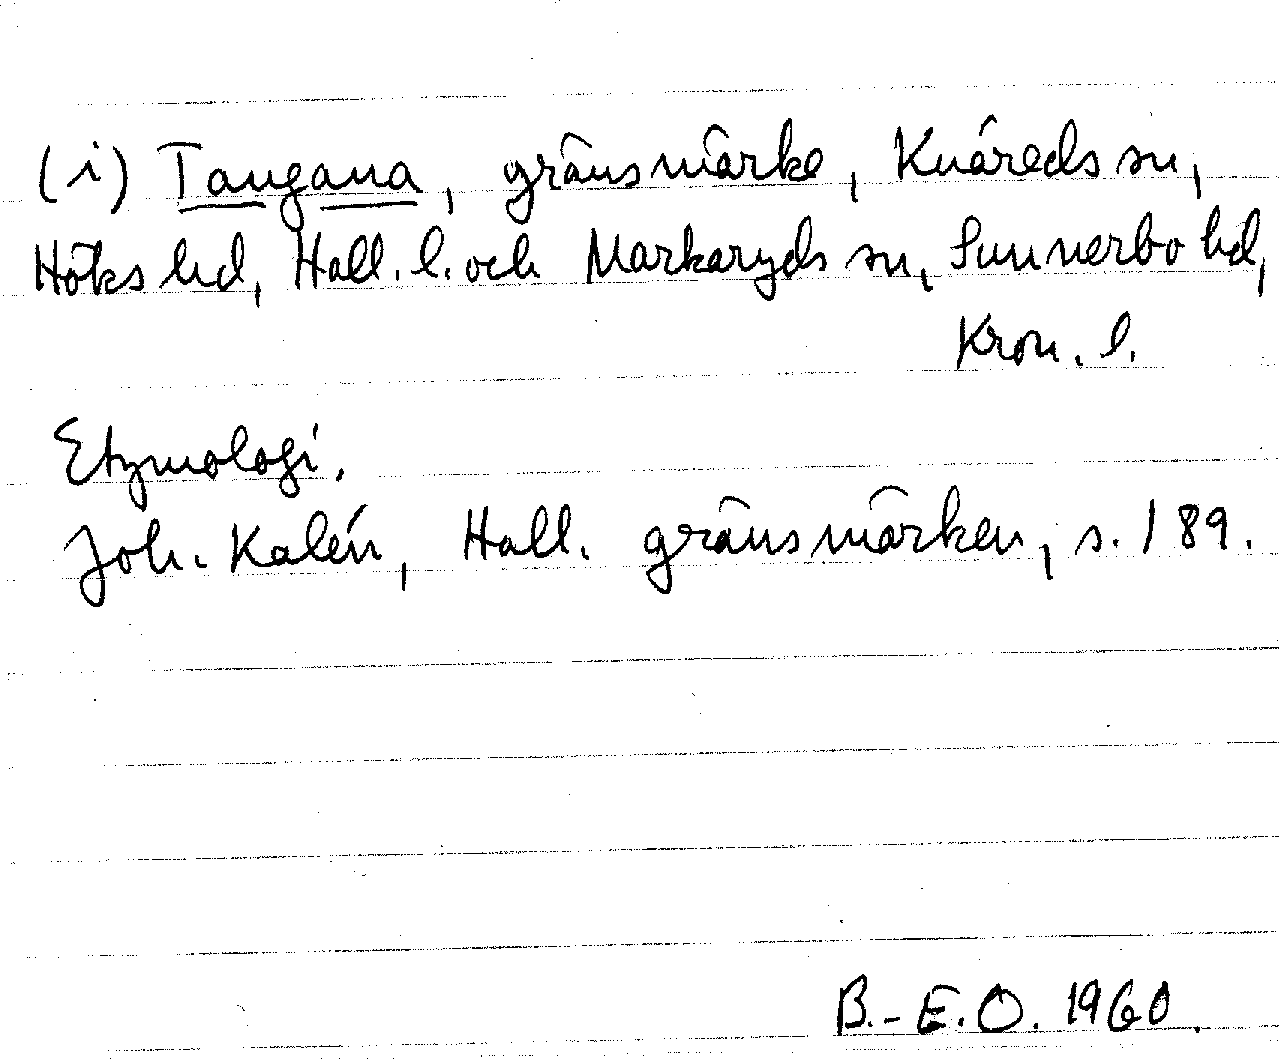 (i) Tangana, gränsmärke, Knäreds sn,
Höks hd, Hall. l. och Markaryds sn, Sunnerbo hd,
Kron. l.
Etymologi.
Joh. Kalén, Hall. gränsmärken, s. 189.
B.-E.O. 1960.